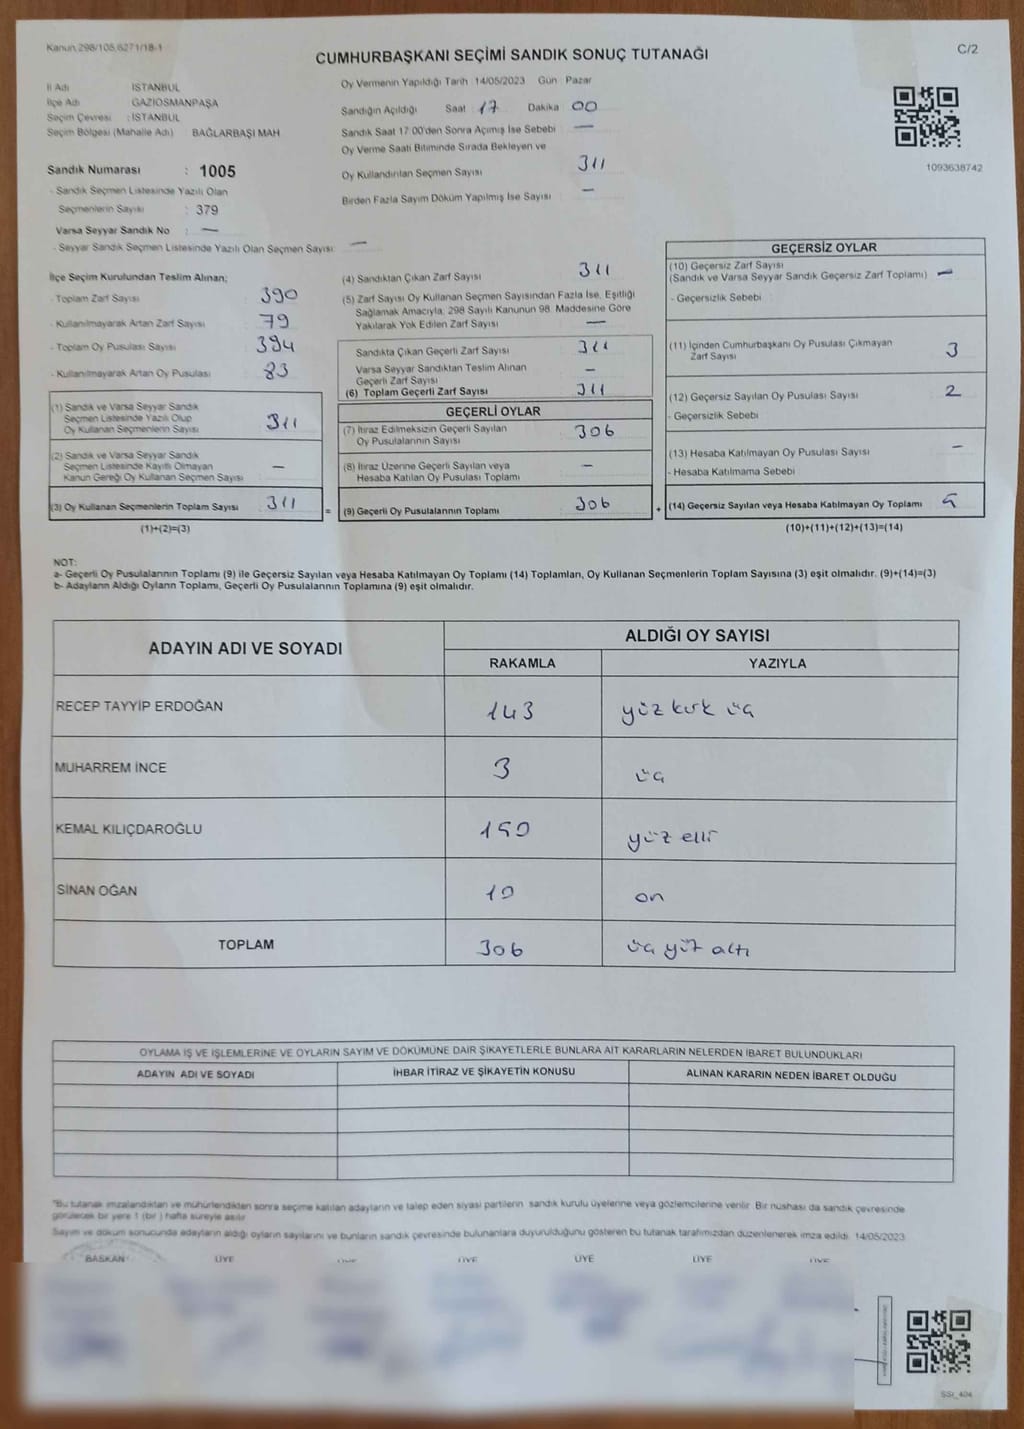 Kanun, 298/105,6271/18-1
CUMHURBAŞKANI SEÇİMİ SANDIK SONUÇ TUTANAĞI
C/2
İl Adı İSTANBUL
İlçe Adı GAZİOSMANPAŞA
Seçim Çevresi : İSTANBUL
Seçim Bölgesi (Mahalle Adı) BAĞLARBAŞI MAH
Sandık Numarası : 1005
- Sandık Seçmen Listesinde Yazılı Olan
Seçmenlerin Sayısı : 379
Varsa Seyyar Sandık No : —
- Seyyar Sandık Seçmen Listesinde Yazılı Olan Seçmen Sayısı: —
Oy Vermenin Yapıldığı Tarih 14/05/2023 Gün Pazar
Sandığın Açıldığı Saat 17 Dakika 00
Sandık Saat 17 00'den Sonra Açımış İse Sebebi —
Oy Verme Saati Bitiminde Sırada Bekleyen ve
Oy Kullandırılan Seçmen Sayısı 311
Birden Fazla Sayım Döküm Yapılmış İse Sayısı —
1093638742
İlçe Seçim Kurulundan Teslim Alınan;
- Toplam Zarf Sayısı 390
- Kullanılmayarak Artan Zarf Sayısı 79
- Toplam Oy Pusulası Sayısı 394
- Kullanılmayarak Artan Oy Pusulası 83
(1) Sandık ve Varsa Seyyar Sandık
Seçmen Listesinde Yazılı Olup
Oy Kullanan Seçmenlerin Sayısı 311
(2) Sandık ve Varsa Seyyar Sandık
Seçmen Listesinde Kayıtlı Olmayan
Kanun Gereği Oy Kullanan Seçmen Sayısı —
(3) Oy Kullanan Seçmenlerin Toplam Sayısı 311 =
(1)+(2)=(3)
(4) Sandıktan Çıkan Zarf Sayısı 311
(5) Zarf Sayısı Oy Kullanan Seçmen Sayısından Fazla İse, Eşitliği
Sağlamak Amacıyla, 298 Sayılı Kanunun 98. Maddesine Göre
Yakılarak Yok Edilen Zarf Sayısı —
Sandıkta Çıkan Geçerli Zarf Sayısı 311
Varsa Seyyar Sandıktan Teslim Alınan
Geçerli Zarf Sayısı —
(6) Toplam Geçerli Zarf Sayısı 311
GEÇERLİ OYLAR
(7) İtiraz Edilmeksizin Geçerli Sayılan
Oy Pusulalarının Sayısı 306
(8) İtiraz Üzerine Geçerli Sayılan veya
Hesaba Katılan Oy Pusulası Toplamı —
(9) Geçerli Oy Pusulalarının Toplamı 306 +
GEÇERSİZ OYLAR
(10) Geçersiz Zarf Sayısı
(Sandık ve Varsa Seyyar Sandık Geçersiz Zarf Toplamı) —
- Geçersizlik Sebebi :
(11) İçinden Cumhurbaşkanı Oy Pusulası Çıkmayan
Zarf Sayısı 3
(12) Geçersiz Sayılan Oy Pusulası Sayısı 2
- Geçersizlik Sebebi
(13) Hesaba Katılmayan Oy Pusulası Sayısı —
- Hesaba Katılmama Sebebi
(14) Geçersiz Sayılan veya Hesaba Katılmayan Oy Toplamı 5
(10)+(11)+(12)+(13)=(14)
NOT:
a- Geçerli Oy Pusulalarının Toplamı (9) ile Geçersiz Sayılan veya Hesaba Katılmayan Oy Toplamı (14) Toplamları, Oy Kullanan Seçmenlerin Toplam Sayısına (3) eşit olmalıdır. (9)+(14)=(3)
b- Adayların Aldığı Oyların Toplamı, Geçerli Oy Pusulalarının Toplamına (9) eşit olmalıdır.
ADAYIN ADI VE SOYADI ALDIĞI OY SAYISI
RAKAMLA YAZIYLA
RECEP TAYYİP ERDOĞAN 143 yüz kırk üç
MUHARREM İNCE 3 üç
KEMAL KILIÇDAROĞLU 150 yüz elli
SİNAN OĞAN 10 on
TOPLAM 306 üç yüz altı
OYLAMA İŞ VE İŞLEMLERİNE VE OYLARIN SAYIM VE DÖKÜMÜNE DAİR ŞİKAYETLERLE BUNLARA AİT KARARLARIN NELERDEN İBARET BULUNDUKLARI
ADAYIN ADI VE SOYADI İHBAR İTİRAZ VE ŞİKAYETİN KONUSU ALINAN KARARIN NEDEN İBARET OLDUĞU
"Bu tutanak imzalandıktan ve mühürlendikten sonra seçime katılan adayların ve talep eden siyasi partilerin sandık kurulu üyelerine veya gözlemcilerine verilir. Bir nüshası da sandık çevresinde
görülecek bir yere 1 (bir) hafta süreyle asılır
Sayım ve döküm sonucunda adayların aldığı oyların sayılarını ve bunların sandık çevresinde bulunanlara duyurulduğunu gösteren bu tutanak tarafımızdan düzenlenerek imza edildi. 14/05/2023
BAŞKAN ÜYE ÜYE ÜYE ÜYE ÜYE ÜYE
SSI_404